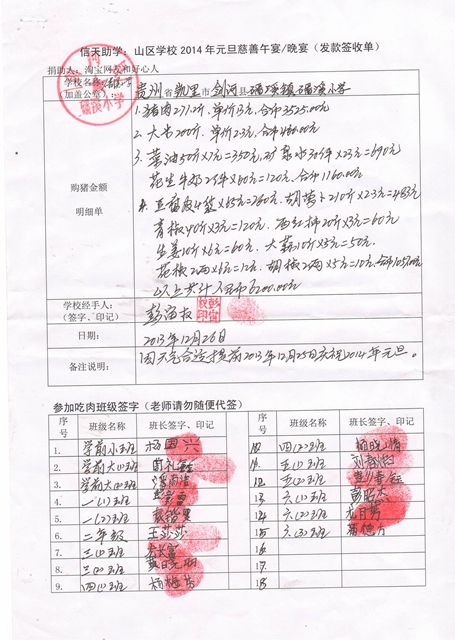 信天助学：山区学校2014年元旦慈善午宴/晚宴（发款签收单）
捐助人：淘宝网友和好心人
学校名称
（加盖公章）：
磻溪小学
贵州省凯里市剑河县磻溪镇磻溪小学
购猪金额
明细单
1.猪肉271.2斤，单价13元，合币3525.00元
2.大米200斤，单价2.3元，合币460.00元
3.菜油50斤×7元=350元，矿泉水30件×23元=690元
花生牛奶2件×60元=120元，合币1160.00元
4.豆腐皮4袋×65元=260元，胡萝卜210斤×2.3=483元
青椒40斤×3元=120元，西红柿20斤×3元=60元
生姜10斤×6元=60元，大蒜10斤×5元=50元，
花椒2两×6元=12元，胡椒2两×5元=10元，合币1055.00元
以上共计人民币6200.00元
学校经手人：
（签字、印记）
日期：
2013年12月26日
备注说明：
因天气合适提前2013年12月25日庆祝2014年元旦。
参加吃肉班级签字（老师请勿随便代签）
序号 班级名称 班长签字、印记 序号 班级名称 班长签字、印记
1. 学前小班 杨国兴 10 四(2)班
2. 学前大(1)班 11. 五(1)班
3. 学前大(2)班 12. 五(2)班
4. 一(1)班 13 六(1)班 彭昭大
5. 一(2)班 14 六(2)班
6. 二年级 王莎莎 15 六(3)班
7. 三(1)班 16
8. 三(2)班 17.
9. 四(1)班 18